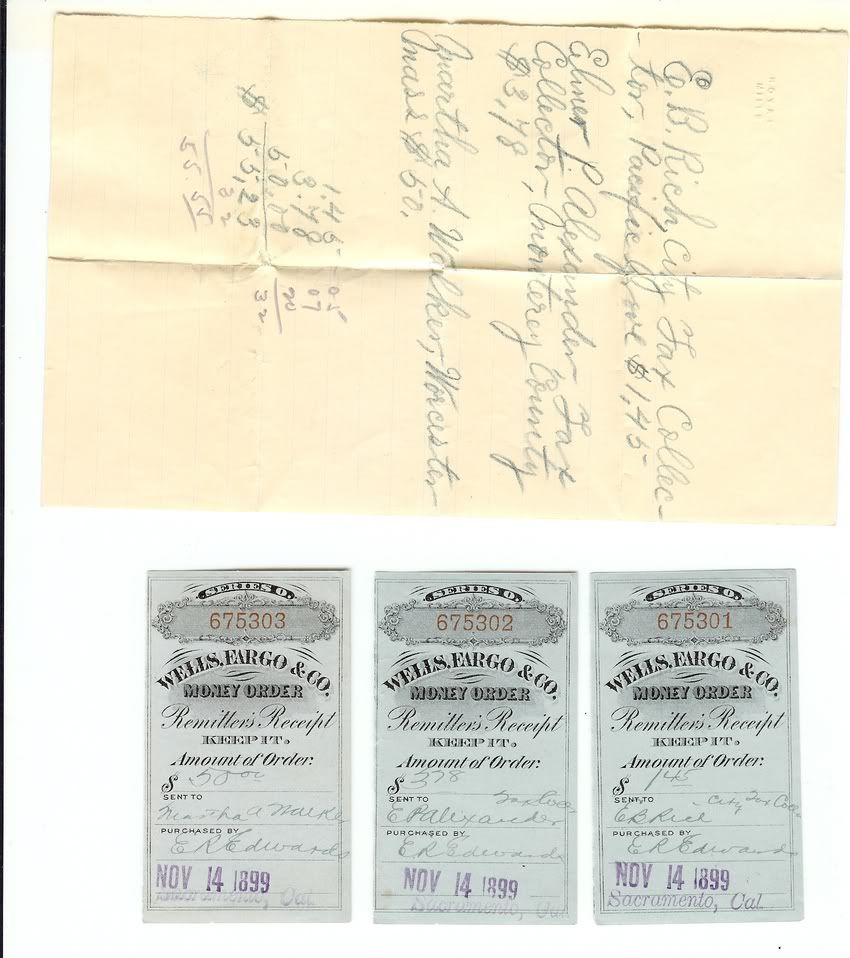 E. B. Rich, City Tax Collec-
tor, Pacific Grove $1,45
Elmer P. Alexander Tax
Collector, Monterey County
$3,78
Martha A. Walker, Worcester
Mass $50.
1.45
3.78
50.00
$55,23
32
55 55
05
07
20
32
SERIES O.
675303
WELLS, FARGO & CO.
MONEY ORDER
Remitter's Receipt
KEEP IT.
Amount of Order:
$ 50 00
SENT TO
Martha A Walker
PURCHASED BY
E R Edwards
NOV 14 1899
Sacramento, Cal.
SERIES O.
675302
WELLS, FARGO & CO.
MONEY ORDER
Remitter's Receipt
KEEP IT.
Amount of Order:
$ 378
SENT TO
E P Alexander
PURCHASED BY
E R Edwards
NOV 14 1899
Sacramento, Cal
SERIES O.
675301
WELLS, FARGO & CO.
MONEY ORDER
Remitter's Receipt
KEEP IT.
Amount of Order:
$ 145
SENT TO
City Tax Coll
E B Rich
PURCHASED BY
E R Edwards
NOV 14 1899
Sacramento, Cal.